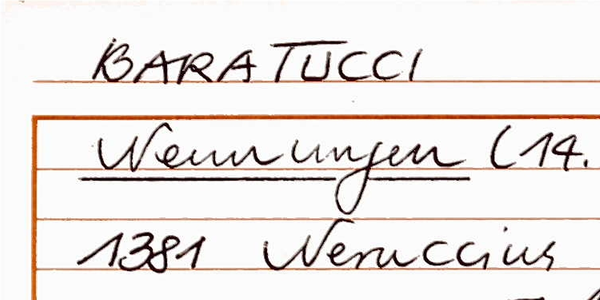 BARATUCCI
Nennungen (14.
1381 Neruccius